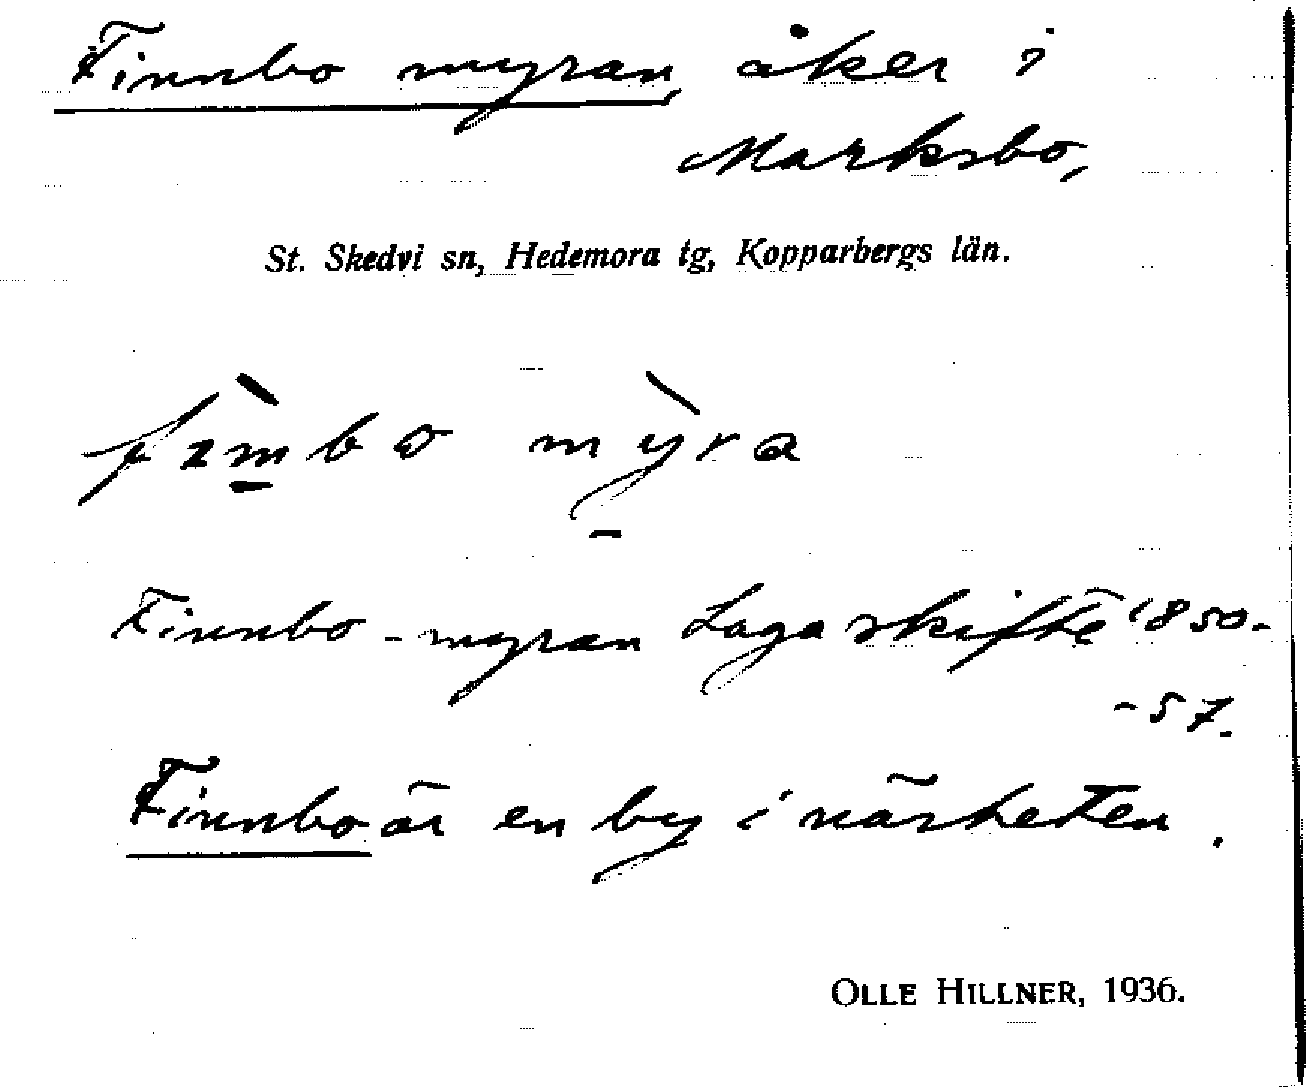 Finnbo myran, åker i
Marksbo,
St. Skedvi sn, Hedemora tg, Kopparbergs län.
Finnbo-myran Laga skifte 1850-
-57.
Finnbo är en by i närheten.
OLLE HILLNER, 1936.